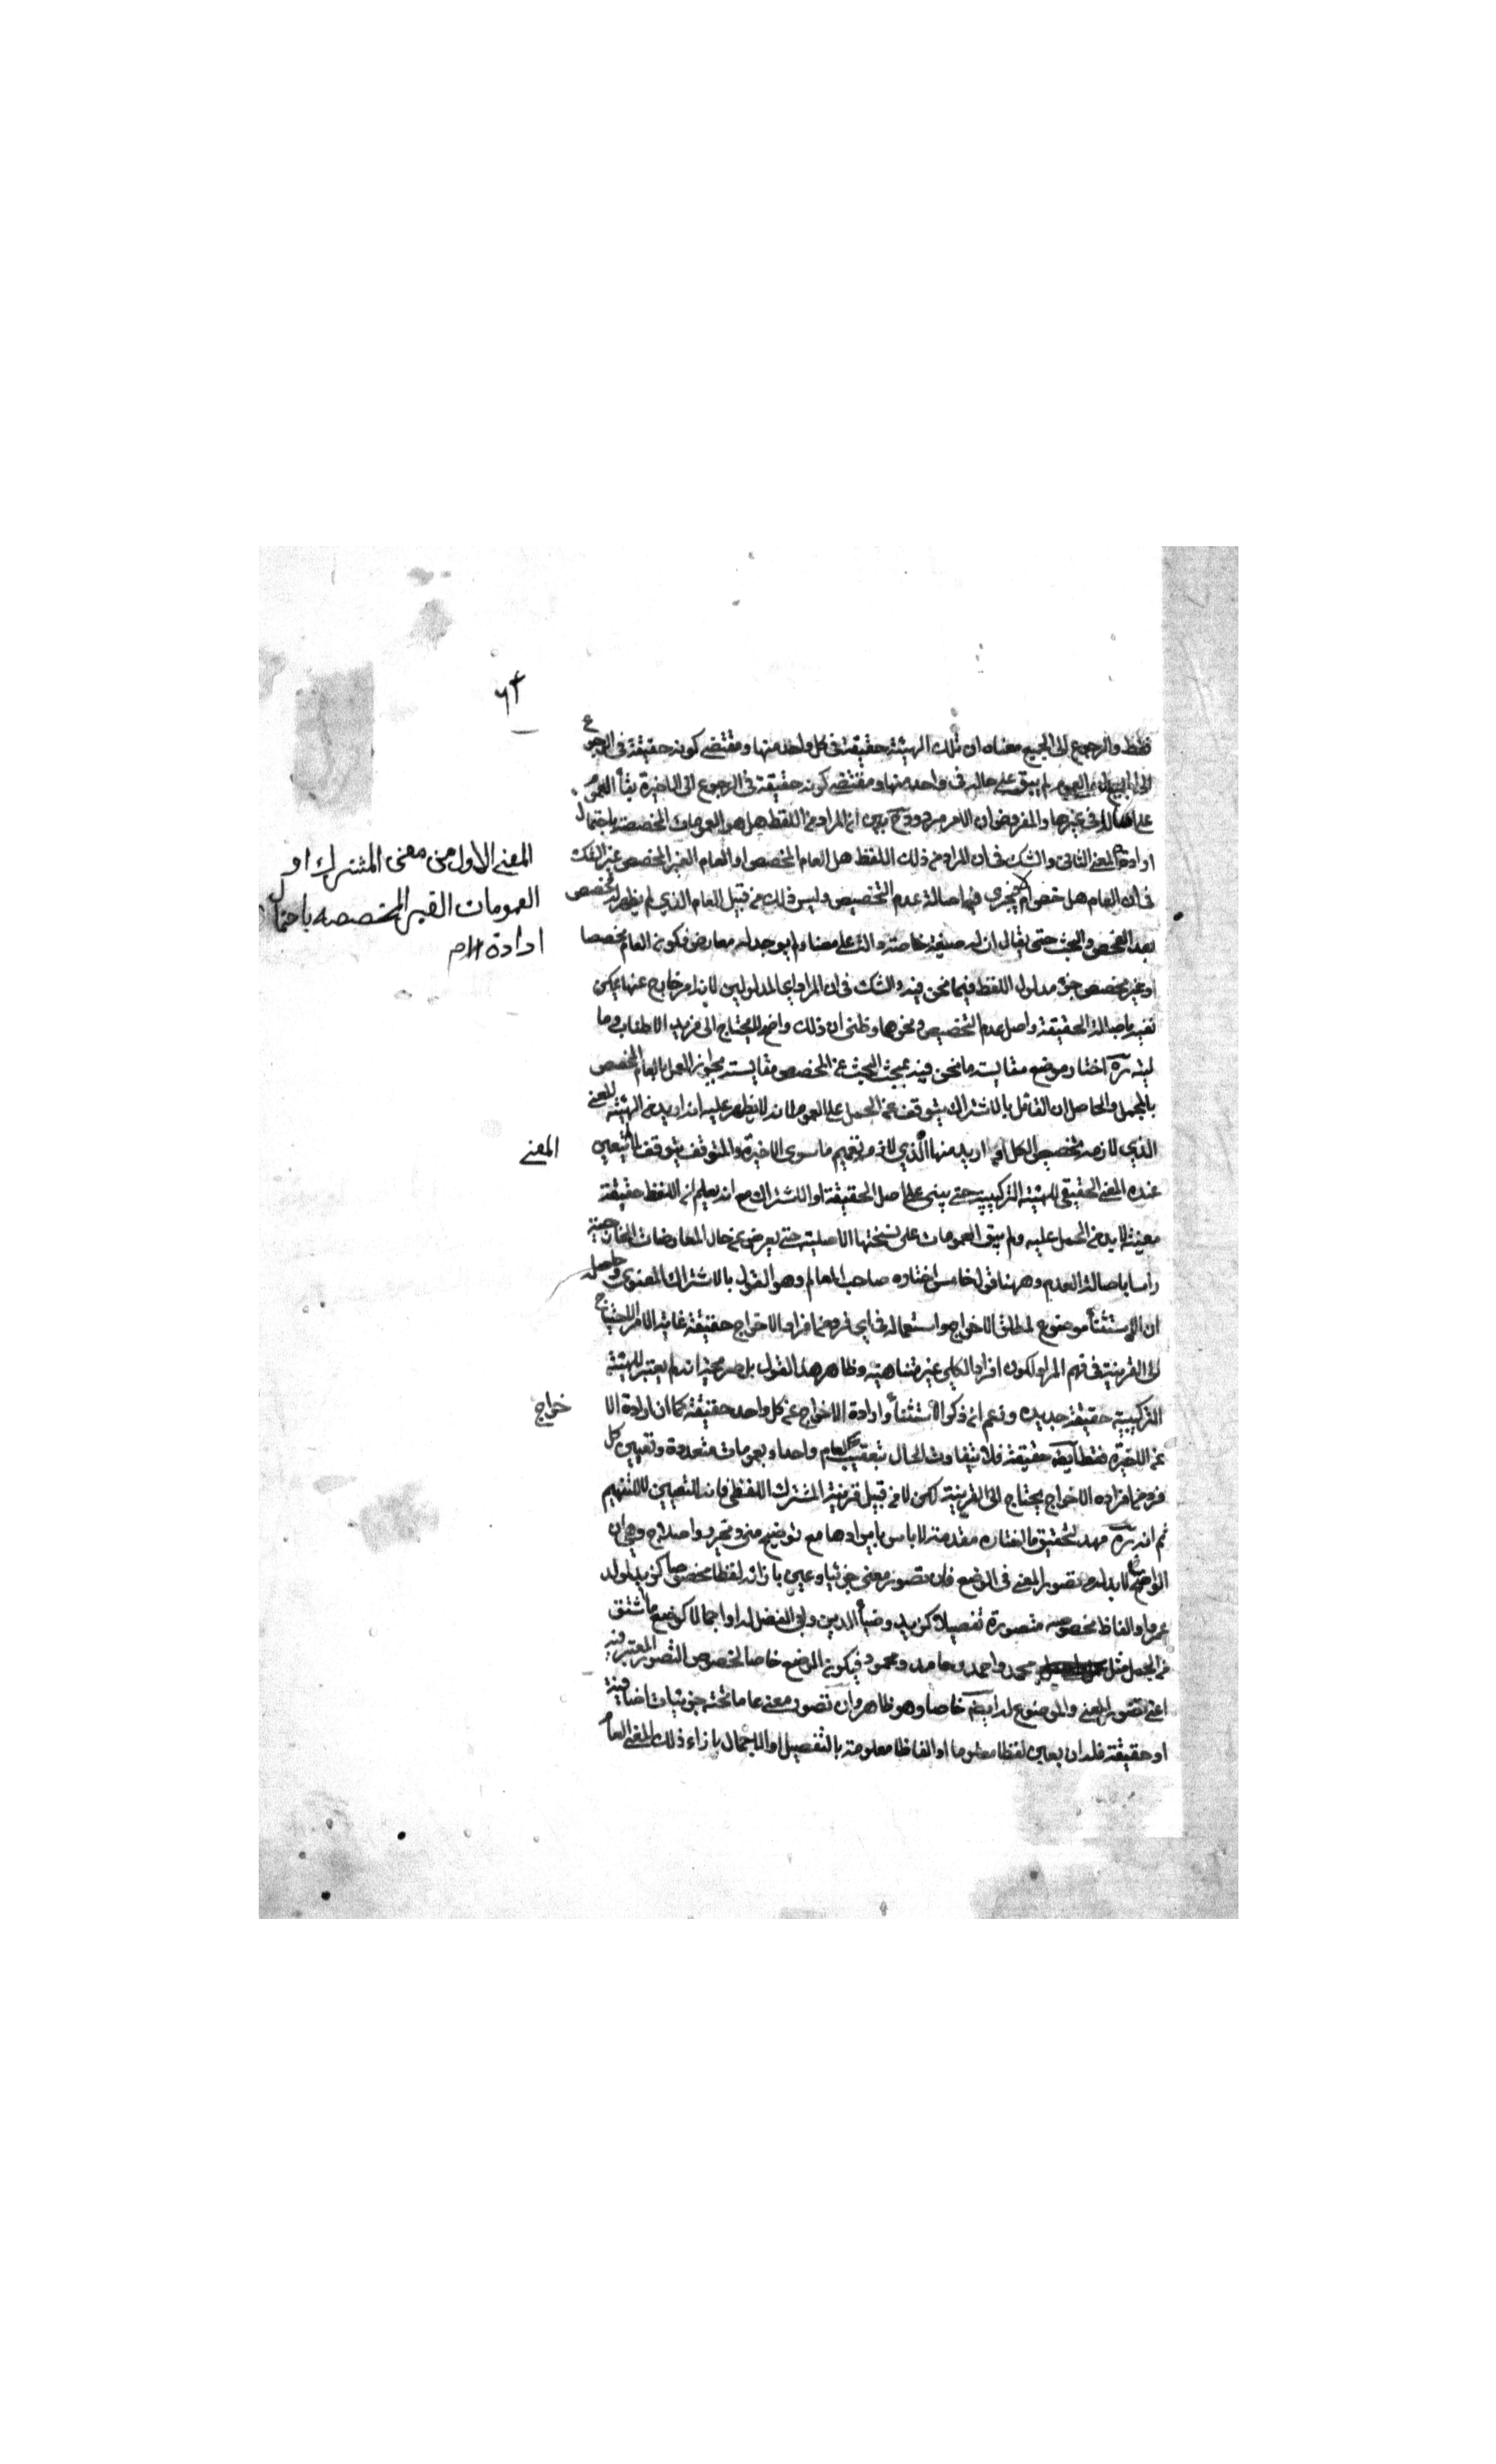 ۶۴
فقط والرجوع الى الجميع معناه ان تلك الهيئة حقيقة فى كل واحد منها ومقتضى كونه حقيقة فى الرجوع
الى الجميع ان العموم لم يبق على حاله فى واحد منها ومقتضى كونه حقيقة فى الرجوع الى الاخيرة بقاء العموم
على حاله فى غيرها والمفروض ان الامر مردود بين ان المراد من اللفظ هل هو العمومات المخصصة باحتمال
المعنى الاول من معنى المشترك او
العمومات الغير المخصصه باحتمال
ارادة
ارادة المعنى الثانى والشك فى ان المراد من ذلك اللفظ هل العام المخصص او العام الغير المخصص غير الشك
فى ان العام هل خص ام لا فيجرى فيها اصالة عدم التخصيص وليس ذلك من قبيل العام الذى لم يظهر له مخصص
بعد الفحص والبحث حتى يقال ان له صيغة خاصة دالة على معناه ولم يوجد له معارض فكون العام مخصصا
او غير مخصص جزء مدلول اللفظ فيما نحن فيه والشك فى ان المراد اى المدلولين لا انه امر خارج عنها يمكن
نفيه باصالة الحقيقة واصل عدم التخصيص ونحوها وظنى ان ذلك واضح لا يحتاج الى مزيد الاطناب وما
ليته ره اختار موضع مقايسة ما نحن فيه بمبحث البحث عن المخصص مقايسته بجواز العمل بالعام المخصص
بالمجمل والحاصل ان القائل بالاشتراك يتوقف عن الحمل على العموم لانه لا يظهر عليه انه اريد من الهيئة المعنى
الذى لازمه تخصيص الكل او اريد منها الذى لازمه تعميم ما سوى الاخيرة والمتوقف يتوقف لا يتعين
المعنى
عنده المعنى الحقيقى للهيئة التركيبية حتى يبنى على اصل الحقيقة او الاشتراك مع انه يعلم ان اللفظ حقيقة
معينة لا بد من الحمل عليه ولم يبق العمومات على نسختها الاصلية حتى يعرض عن حال المعارضات الخارجية
راسا باصالة العدم وههنا قول خامس اختاره صاحب المعالم وهو القول بالاشتراك المعنوى وحاصله
ان الاستثناء موضوع لمطلق الاخراج واستعماله فى اى فرد من افراد الاخراج حقيقة غاية الامر الاحتياج
الى القرينة فى فهم المراد لكون افراد الكلى غير متناهية وظاهر هذا القول بل صريحه انه لم يعتبر للهيئة
التركيبية حقيقة جديدة وزعم ان ذكر الاستثناء وارادة الاخراج عن كل واحد حقيقة كما ان ارادة الا
خراج
عن الاخيرة فقط ايضا حقيقة فلا يتفاوت الحال بتعقبه لعام واحد او بعمومات متعددة وتعيين كل
فرد من افراده الاخراج يحتاج الى القرينة لكن لا من قبيل قرينة المشترك اللفظى فانه لتعيين لا للتفهيم
ثم انه ره مهد لتحقيق ما اختاره مقدمة لا باس بايرادها مع توضيح منى وتحرير واصلاح وهى ان
الواضع لا بد له من تصور المعنى فى الوضع فان تصور معنى جزئيا وعين بازائه لفظا مخصوصا كزيد لولد
عمرو او الفاظ مخصوصه متصورة تفصيلا كزيد وضياء الدين وابى الفضل له او اجمالا كوضع ما اشتق
من الحمد مثل محمد واحمد وحامد ومحمود فيكون الوضع خاصا لخصوص التصور المعتبر فيه
اعنى تصور المعنى والموضوع له ايضا خاصا وهو ظاهر وان تصور معنى عاما تحته جزئيات اضافية
او حقيقة فله ان يعين لفظا معلوما او الفاظا معلومة بالتفصيل او الاجمال بازاء ذلك المعنى العام